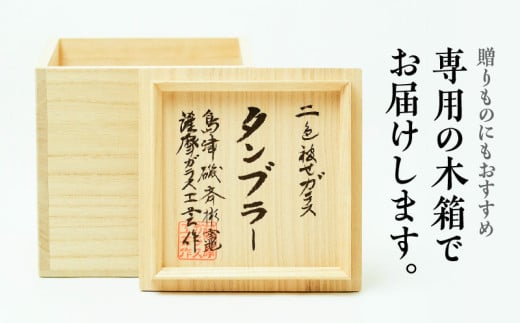 贈りものにもおすすめ
専用の木箱で
お届けします。
二色被せガラス
タンブラー
島津磯斉彬窯
薩摩ガラス工芸作